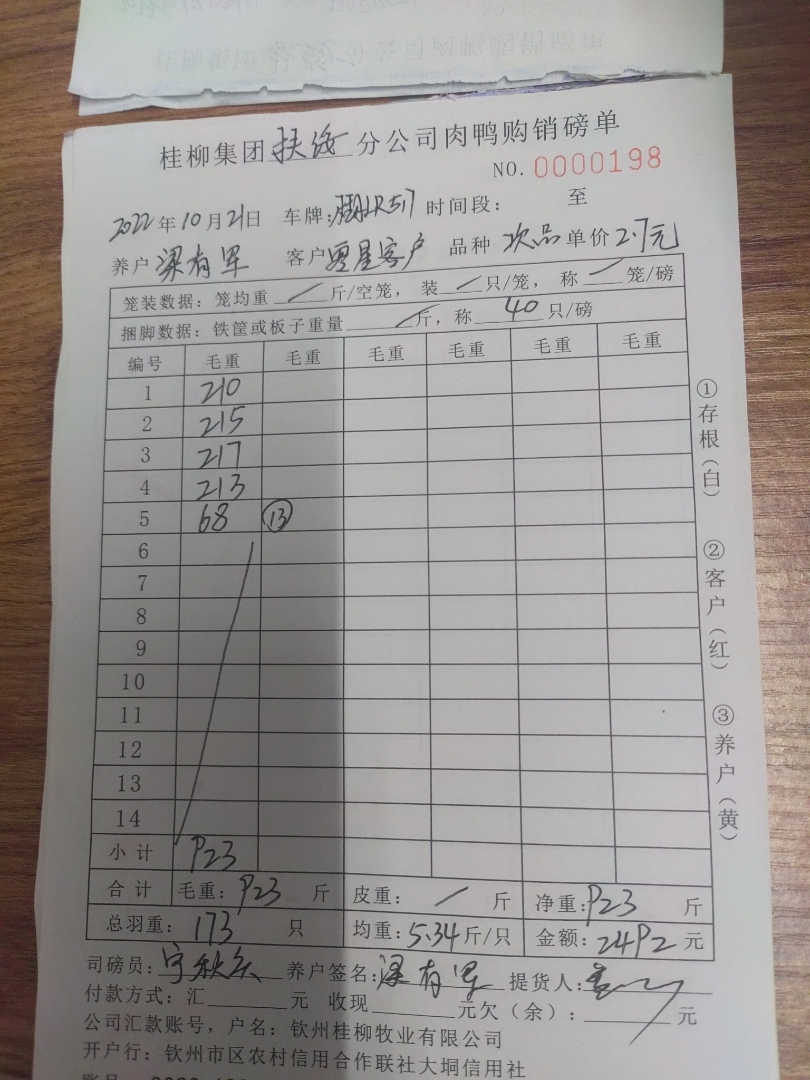 桂柳集团扶绥分公司肉鸭购销磅单
NO. 0000198
2022年10月21日 车牌: 时间段: 至
养户 梁有军 客户 零星客户 品种 次品 单价 2.7元
笼装数据: 笼均重 / 斤/空笼, 装 / 只/笼, 称 / 笼/磅
捆脚数据: 铁筐或板子重量 / 斤, 称 40 只/磅
编号 毛重 毛重 毛重 毛重 毛重 毛重
1 210
2 215
3 217
4 213
5 68 ⑬
6
7
8
9
10
11
12
13
14
小计 923
合计 毛重: 923 斤 皮重: / 斤 净重: 923 斤
总羽重: 173 只 均重: 5.34 斤/只 金额: 2492 元
司磅员: 养户签名: 梁有军 提货人:
付款方式: 汇 元 收现 元欠(余): 元
公司汇款账号, 户名: 钦州桂柳牧业有限公司
开户行: 钦州市区农村信用合作联社大垌信用社
①存根(白) ②客户(红) ③养户(黄)